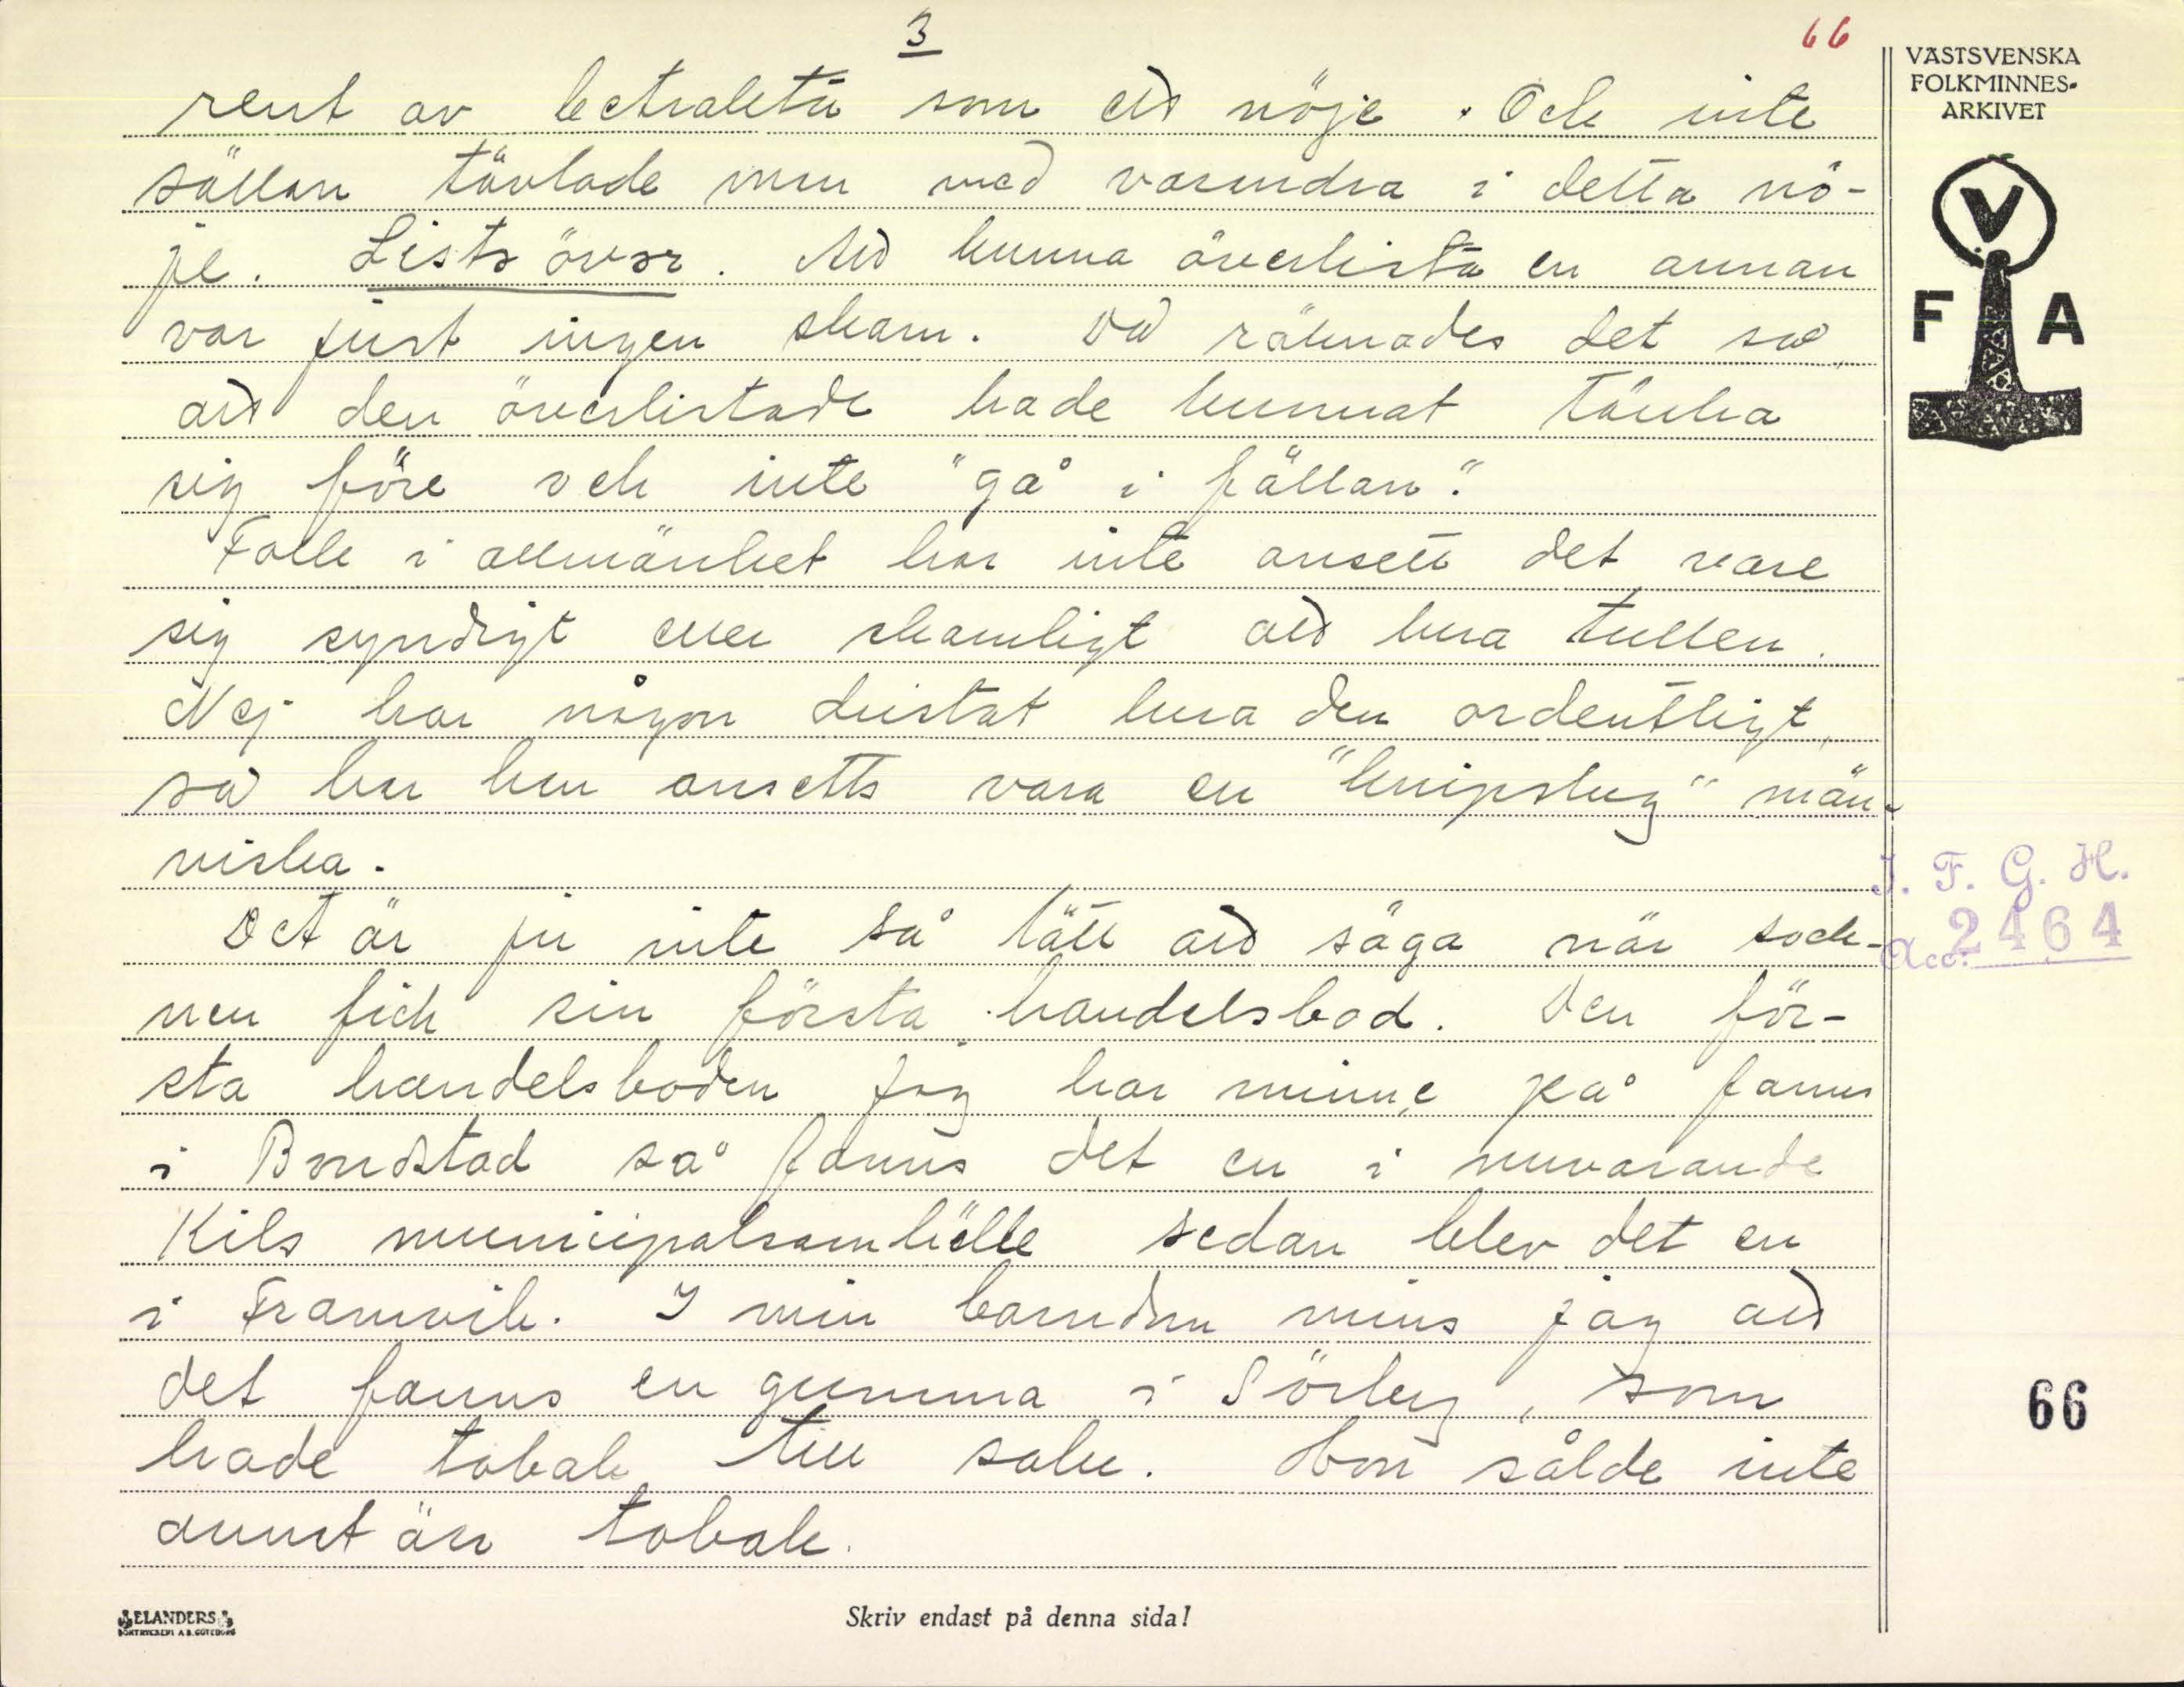 3
66
VÄSTSVENSKA
FOLKMINNES-
ARKIVET
V
F A
rent av betrakta som ett nöje. Och inte
sällan tävlade man med varandra i detta nö-
je. Lista över. Att kunna överlista en annan
var just ingen skam. Då räknades det så,
att den överlistade hade kunnat tänka
sig före och inte "gå i fällan".
Folk i allmänhet har inte ansett det vare
sig syndigt eller skamligt att lura tullen.
Nej har någon listat lura den ordentligt,
så har han ansetts vara en "knipslug" män-
niska.
Det är ju inte så lätt att säga när sock-
nen fick sin första handelsbod. Den för-
sta handelsboden jag har minne på fanns
i Bondstad så fanns det en i nuvarande
Kils municipalsamhälle sedan blev det en
i Framvik. I min barndom mins jag att
det fanns en gumma i Sörby, som
hade tobak till salu. Hon sålde inte
annat än tobak.
I. F. G. H.
Acc. 2464
66
ELANDERS
BOKTRYCKERI A.B. GÖTEBORG
Skriv endast på denna sida!